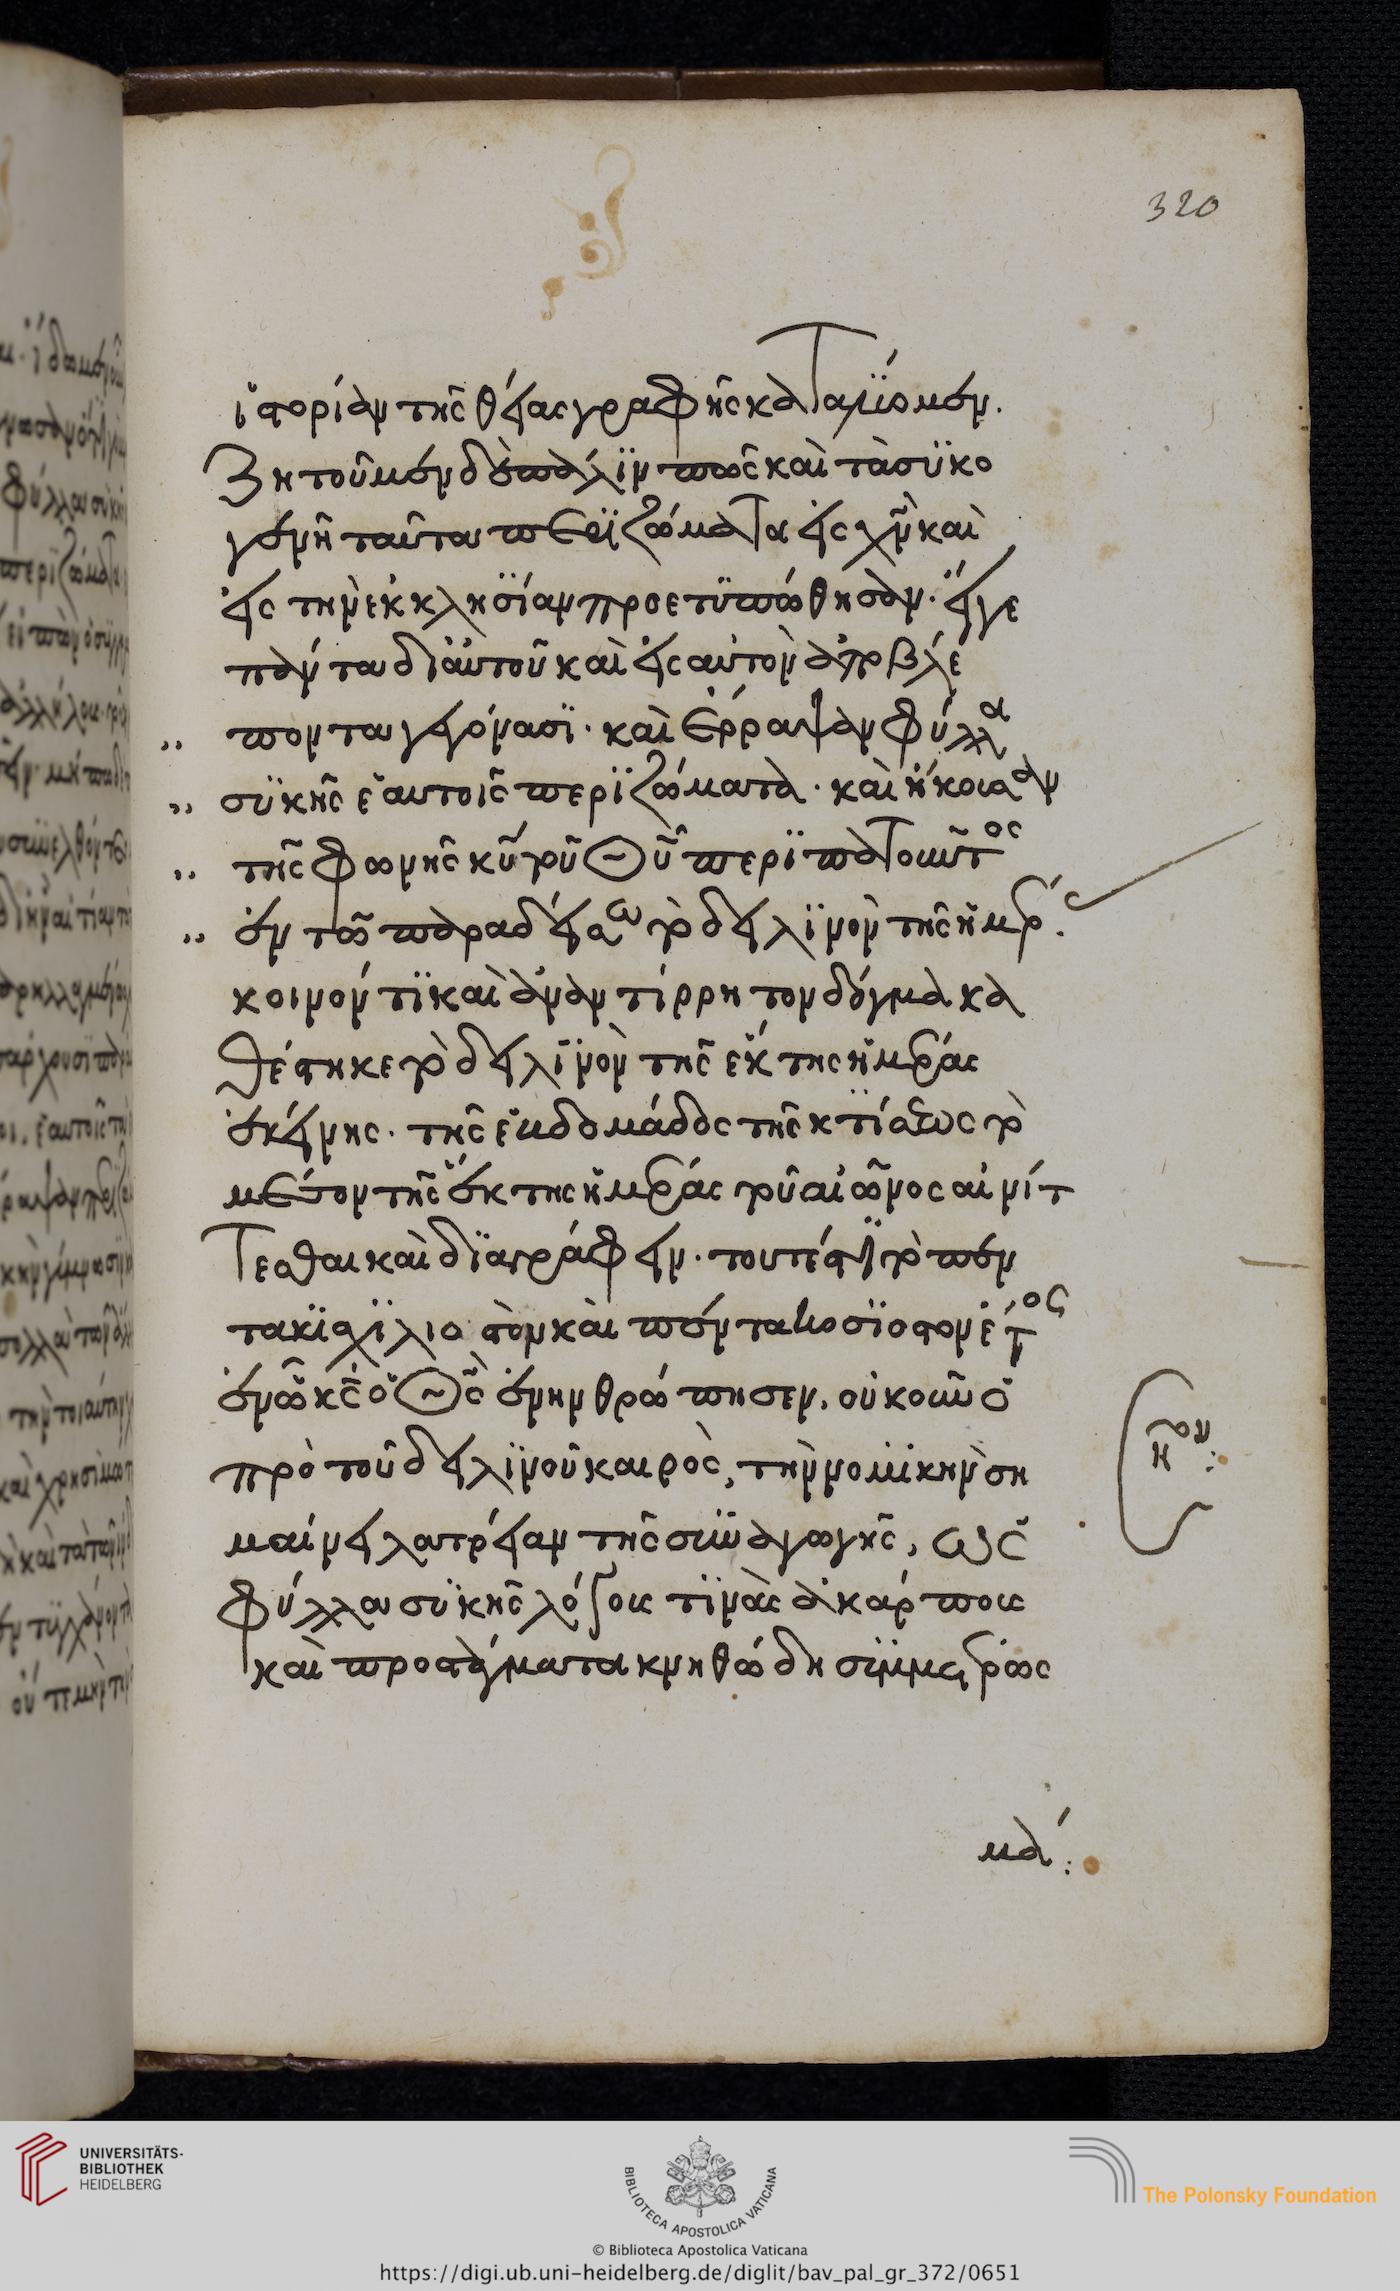 320
ἱστορίαν τῆς θείας γραφῆς κατανοῶμεν.
Ζητοῦμεν δὲ πάλιν πῶς καὶ τὰ συκο
γενῆ ταῦτα περιζώματα εἰς χν καὶ
εἰς τὴν ἐκκλησίαν προετυπώθησαν. εἴγε
πάντα δι' αὐτοῦ καὶ εἰς αὐτὸν ἀποβλέ
ποντα γεγόνασι. καὶ ἔρραψαν φύλλα
συκῆς ἑαυτοῖς περιζώματα. καὶ ἤκουσαν
τῆς φωνῆς κυ τοῦ θυ περιπατοῦντος
ἐν τῶ παραδείσω τὸ δειλινὸν τῆς ἡμέρας.
κοινόν τι καὶ ἀναντίρρητον δόγμα κα
θέστηκε τὸ δειλινὸν τῆς ἕκτης ἡμέρας
ἐκείνης. τῆς ἑβδομάδος τῆς κτίσεως τὸ
μέσον τῆς ἕκτης ἡμέρας τοῦ αἰῶνος αἰνίτ
τεσθαι καὶ διαγράφειν. τουτέστι τὸ πεν
τακισχιλιοστὸν καὶ πεντακοσιοστὸν ἔτος
ἐν ὧ κς ὁ θς ἐνηνθρώπησεν. οὐκοῦν ὁ
πρὸ τοῦ δειλινοῦ καιρὸς, τὴν νομικὴν ση
μαίνει λατρείαν τῆς συναγωγῆς, ὡς
φύλλα συκῆς λόγοις τισὶν ἀκάρποις
καὶ προστάγματα κνηθώδη συμμέτρως
μα:
UNIVERSITÄTS-
BIBLIOTHEK
HEIDELBERG
BIBLIOTECA APOSTOLICA VATICANA
© Biblioteca Apostolica Vaticana
The Polonsky Foundation
https://digi.ub.uni-heidelberg.de/diglit/bav_pal_gr_372/0651